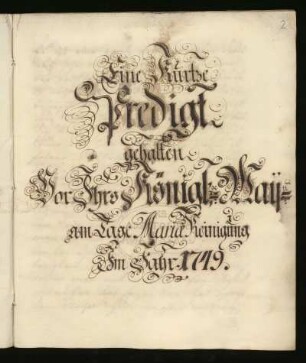 2
Eine Kurtze
Predigt
gehalten
Vor Ihro Königl: May:
am Tage Mariä Reinigung
Im Jahr 1749.